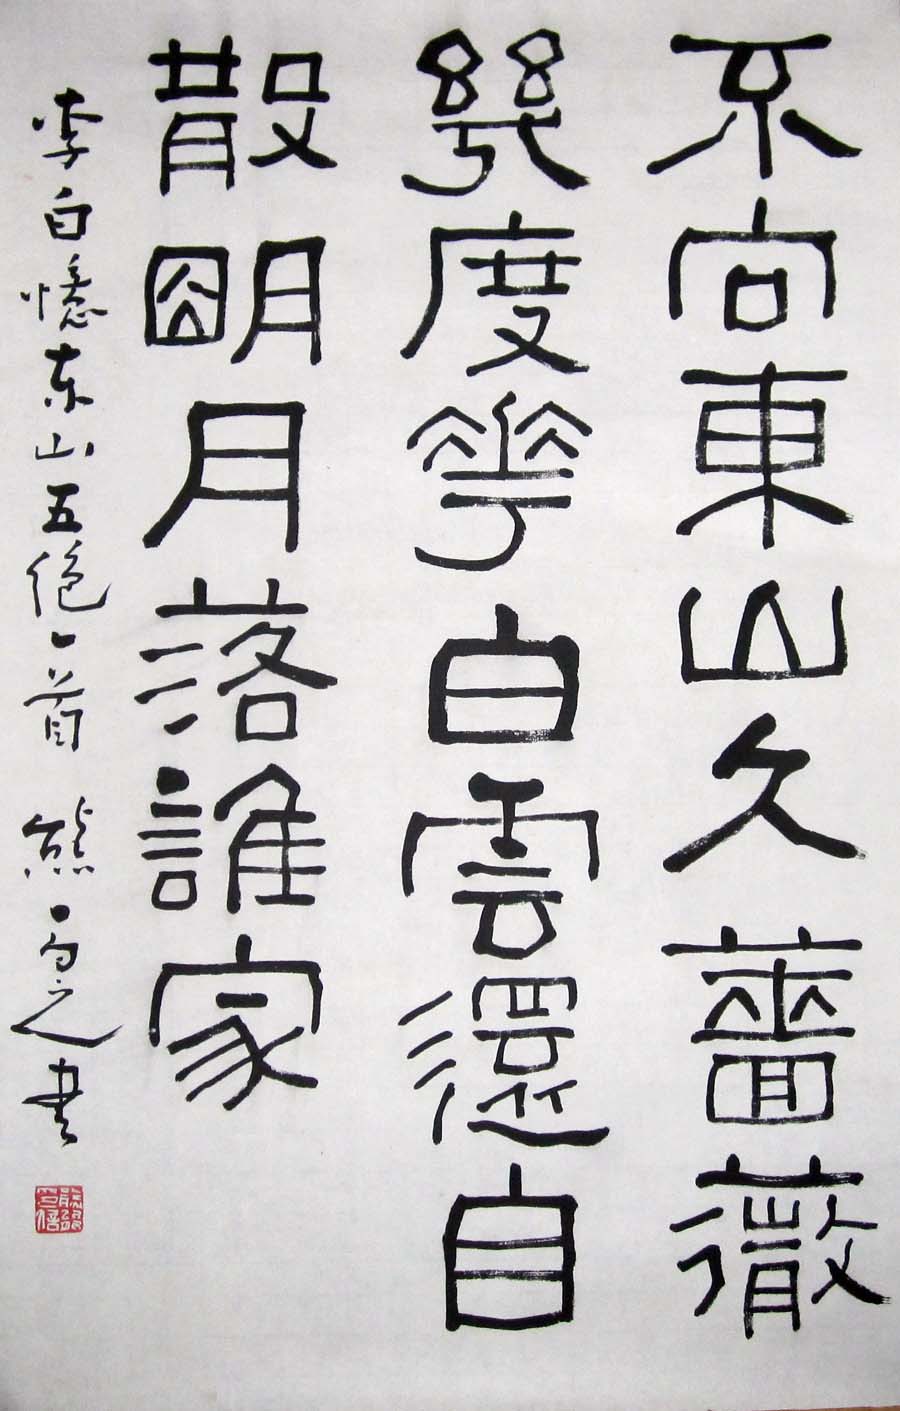 不向東山久薔薇
幾度花白雲還自
散朙月落誰家
李白憶东山五绝一首 熊